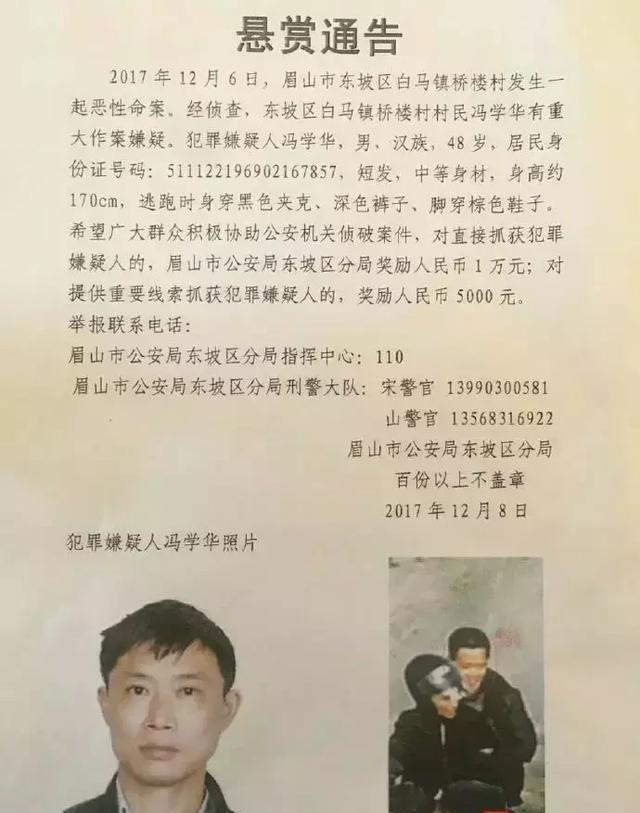 悬赏通告
2017 年 12 月 6 日，眉山市东坡区白马镇桥楼村发生一
起恶性命案。经侦查，东坡区白马镇桥楼村村民冯学华有重
大作案嫌疑。犯罪嫌疑人冯学华，男、汉族，48 岁，居民身
份证号码：511122196902167857，短发，中等身材，身高约
170cm，逃跑时身穿黑色夹克、深色裤子、脚穿棕色鞋子。
希望广大群众积极协助公安机关侦破案件，对直接抓获犯罪
嫌疑人的，眉山市公安局东坡区分局奖励人民币 1 万元；对
提供重要线索抓获犯罪嫌疑人的，奖励人民币 5000 元。
举报联系电话：
眉山市公安局东坡区分局指挥中心：110
眉山市公安局东坡区分局刑警大队：宋警官 13990300581
山警官 13568316922
眉山市公安局东坡区分局
百份以上不盖章
2017 年 12 月 8 日
犯罪嫌疑人冯学华照片